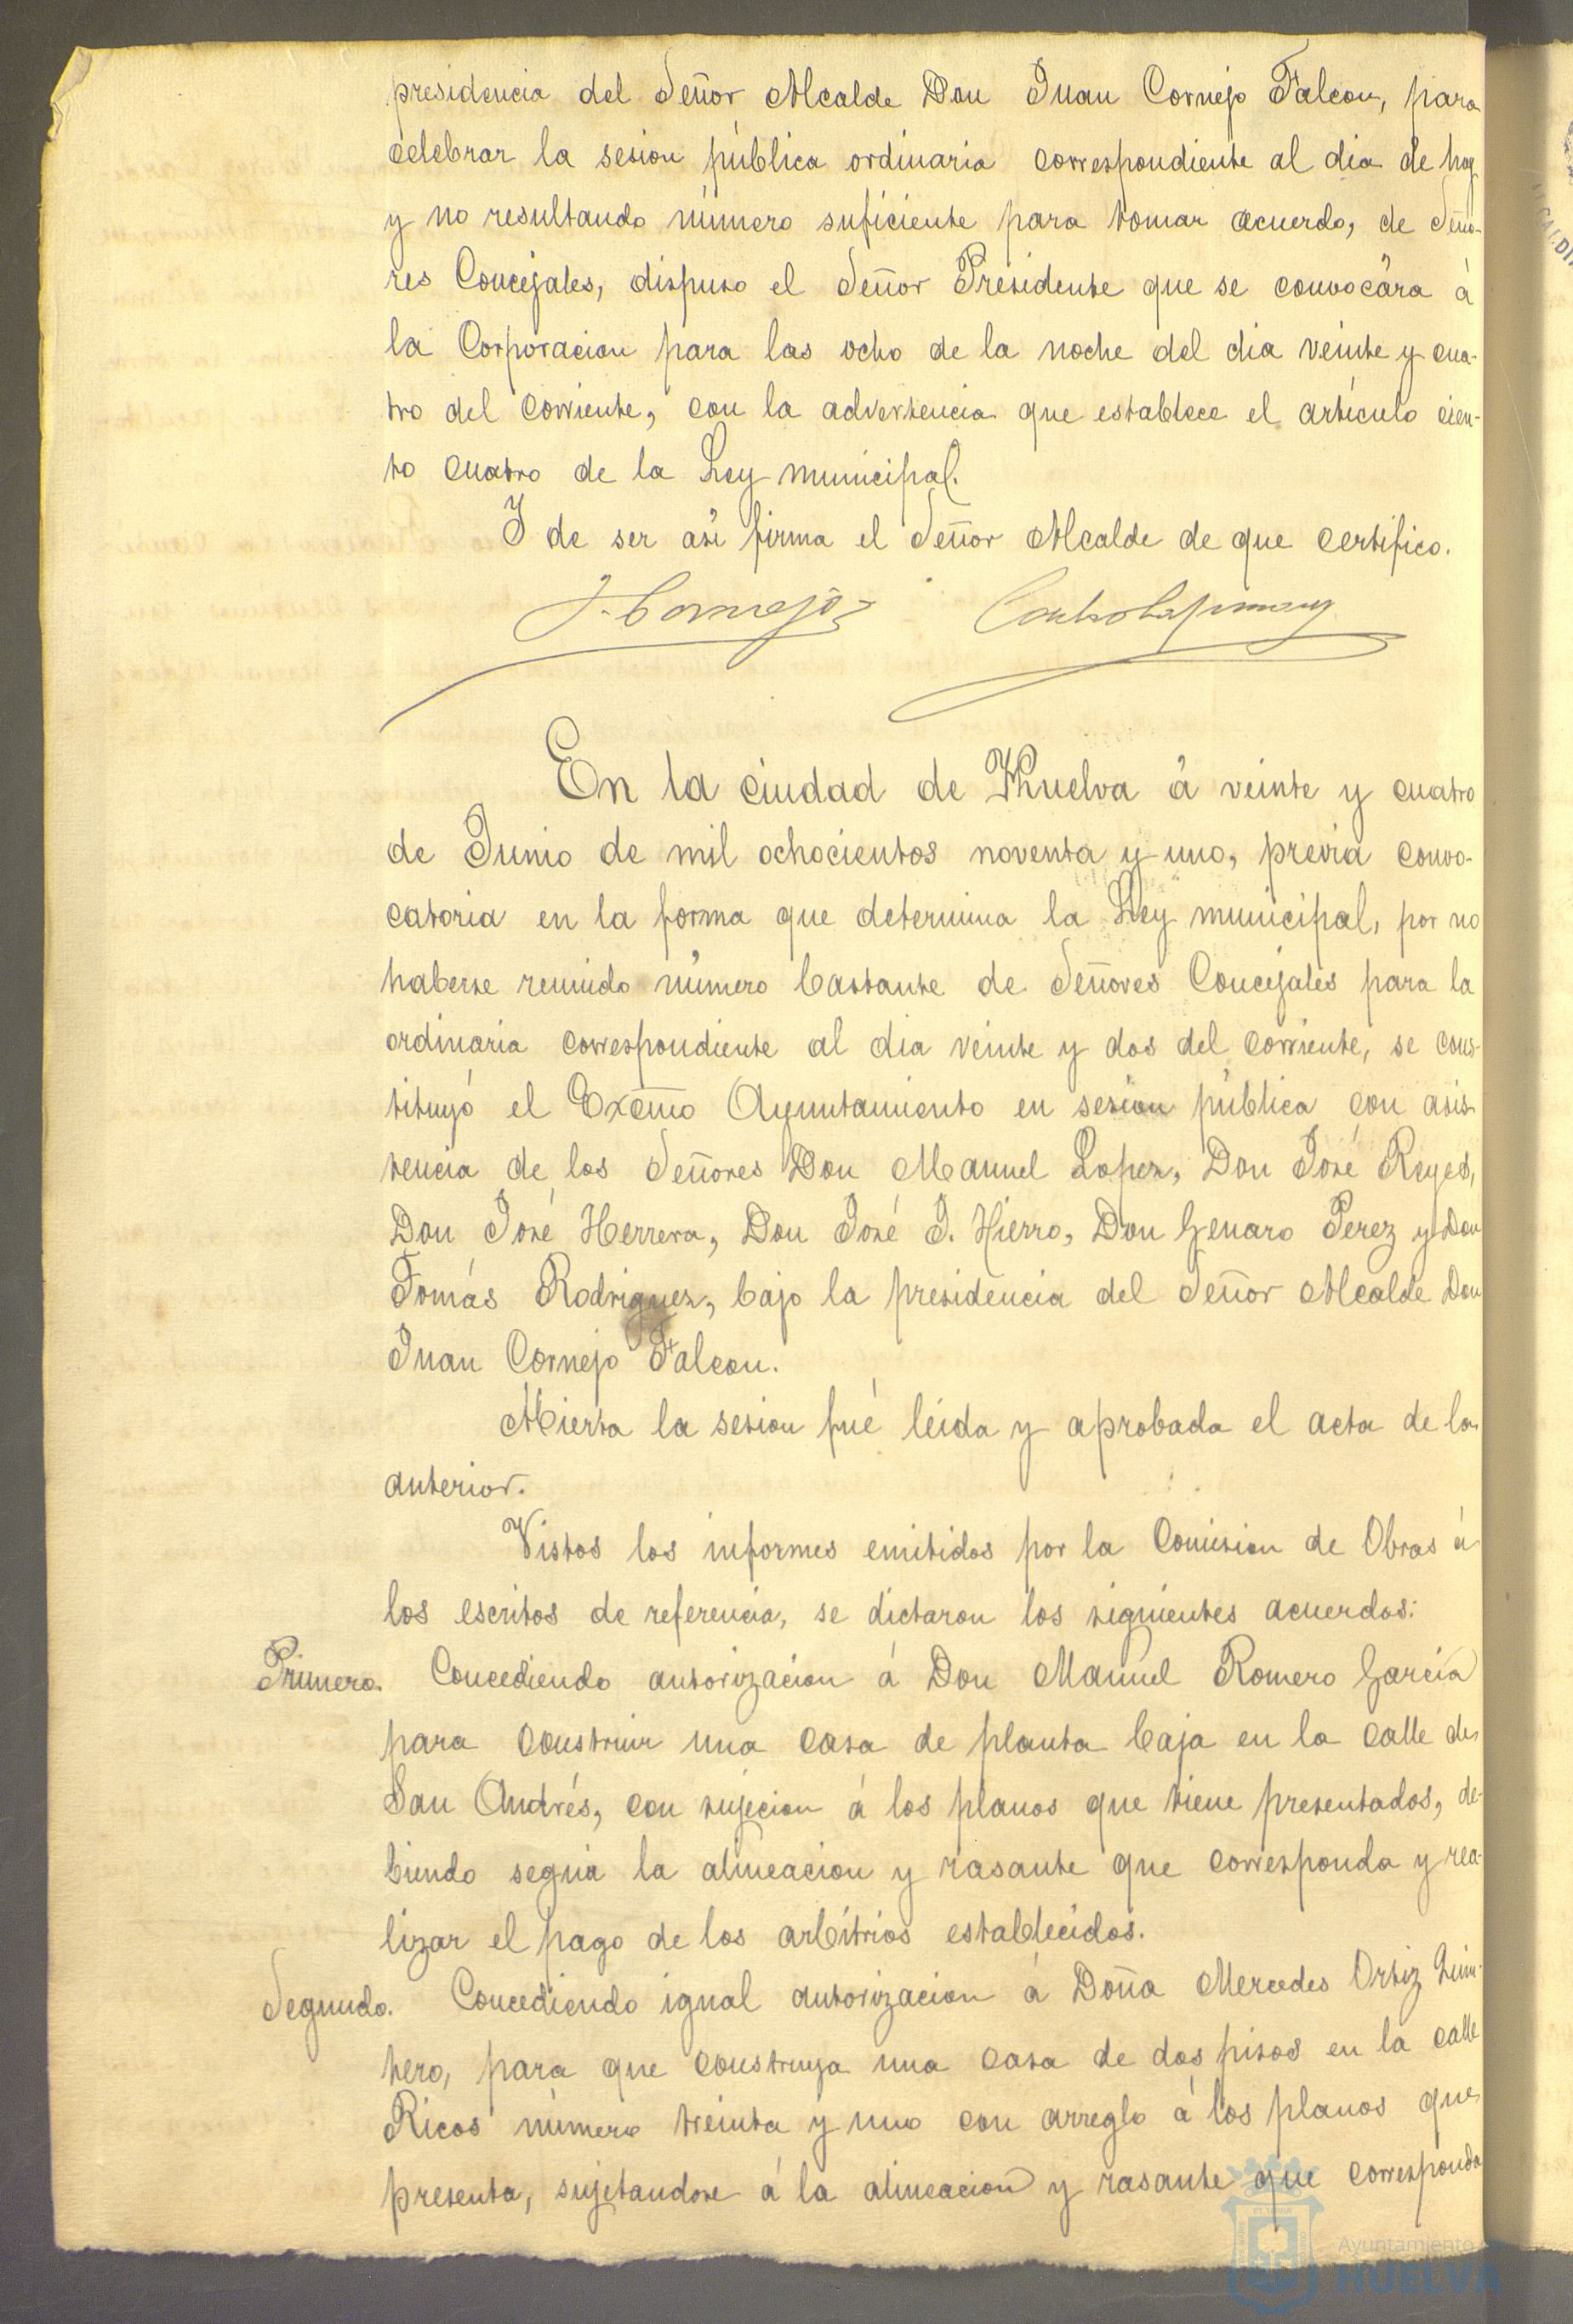 presidencia del Señor Alcalde Don Juan Cornejo Falcon, para
celebrar la sesion pública ordinaria correspondiente al dia de hoy
y no resultando número suficiente para tomar acuerdo, de Seño-
res Concejales, dispuso el Señor Presidente que se convocára á
la Corporacion para las ocho de la noche del dia veinte y cua-
tro del corriente, con la advertencia que establece el artículo cien-
to cuatro de la Ley municipal.
Y de ser asi firma el Señor Alcalde de que certifico.
J. Cornejo
En la ciudad de Huelva á veinte y cuatro
de Junio de mil ochocientos noventa y uno, previa convo-
catoria en la forma que determina la Ley municipal, por no
haberse reunido número bastante de Señores Concejales para la
ordinaria correspondiente al dia veinte y dos del corriente, se cons-
tituyó el Excmo Ayuntamiento en sesion pública con asis-
tencia de los Señores Don Manuel Lopez, Don José Reyes,
Don José Herrera, Don José J. Hierro, Don Genaro Perez y Don
Tomás Rodriguez, bajo la presidencia del Señor Alcalde Don
Juan Cornejo Falcon.
Abierta la sesion fué leida y aprobada el acta de la
anterior.
Vistos los informes emitidos por la Comision de Obras á
los escritos de referencia, se dictaron los siguientes acuerdos:
Primero. Concediendo autorizacion á Don Manuel Romero Garcia
para construir una casa de planta baja en la calle de
San Andrés, con sujecion á los planos que tiene presentados, de-
biendo seguir la alineacion y rasante que corresponda y rea-
lizar el pago de los arbitrios establecidos.
Segundo. Concediendo igual autorizacion á Doña Mercedes Ortiz
para que construya una casa de dos pisos en la calle
Ricos número treinta y uno con arreglo á los planos que
presenta, sujetandose á la alineacion y rasante que corresponda
Ayuntamiento
HUELVA